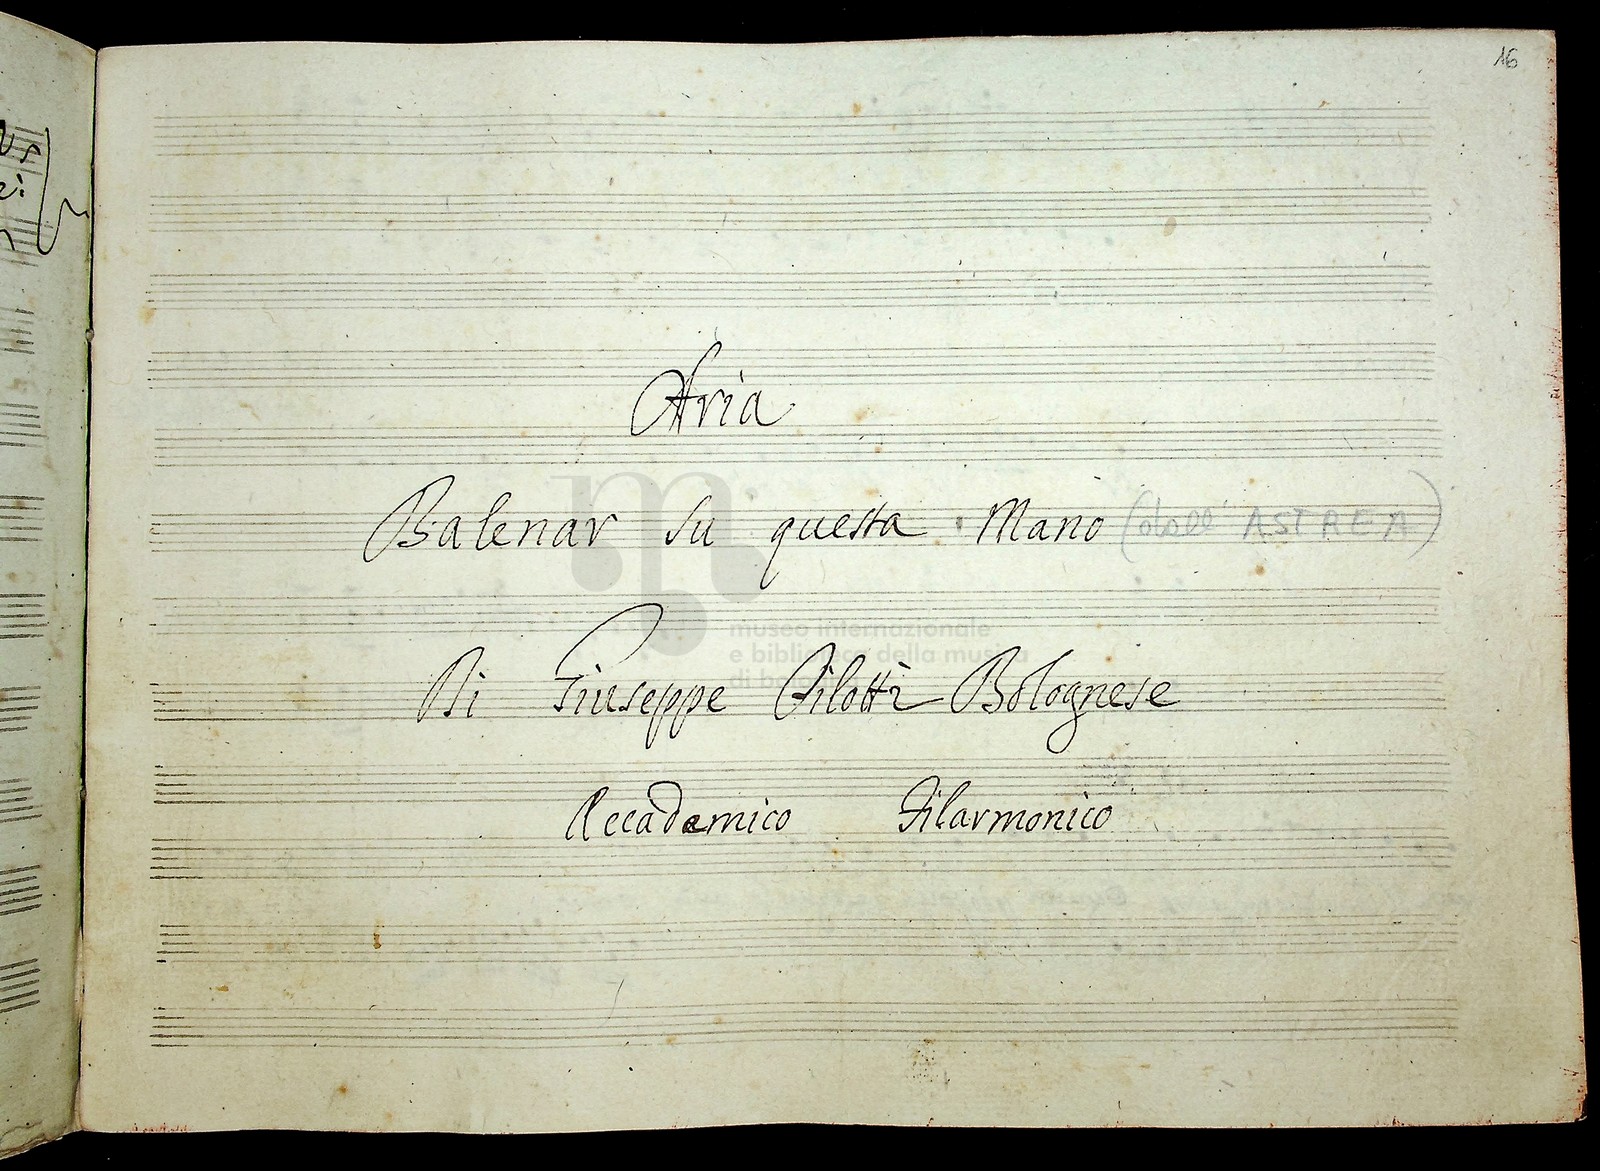 16
Aria
Balenar su questa Mano (dall' ASTREA)
museo internazionale
e biblioteca della musica
di bologna
Di Giuseppe Pilotti Bolognese
Accademico Filarmonico